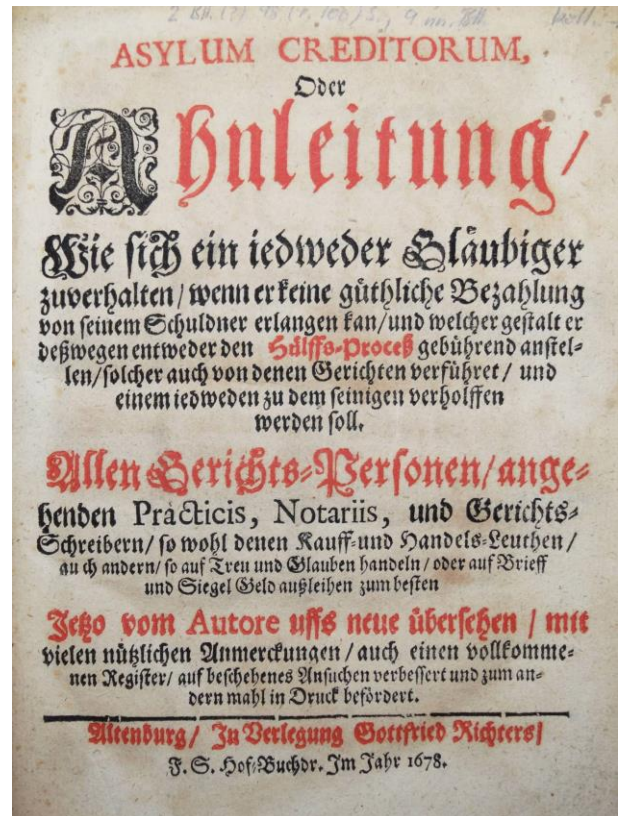 ASYLUM CREDITORUM,
Oder
Ahnleitung/
Wie sich ein iedweder Gläubiger
zuverhalten/ wenn er keine güthliche Bezahlung
von seinem Schuldner erlangen kan/ und welcher gestalt er
deßwegen entweder den Hülffs-Proceß gebührend anstel-
len/ solcher auch von denen Gerichten verführet/ und
einem iedweden zu dem seinigen verholffen
werden soll.
Allen Gerichts-Personen/ ange-
henden Practicis, Notariis, und Gerichts-
Schreibern/ so wohl denen Kauff- und Handels-Leuthen/
au ch andern/ so auf Treu und Glauben handeln/ oder auf Brieff
und Siegel Geld außleihen zum besten
Jetzo vom Autore uffs neue übersehen/ mit
vielen nützlichen Anmerckungen/ auch einen vollkomme-
nen Register/ auf beschehenes Ansuchen verbessert und zum an-
dern mahl in Druck befördert.
Altenburg/ In Verlegung Gottfried Richters/
F. S. Hof-Buchdr. Im Jahr 1678.